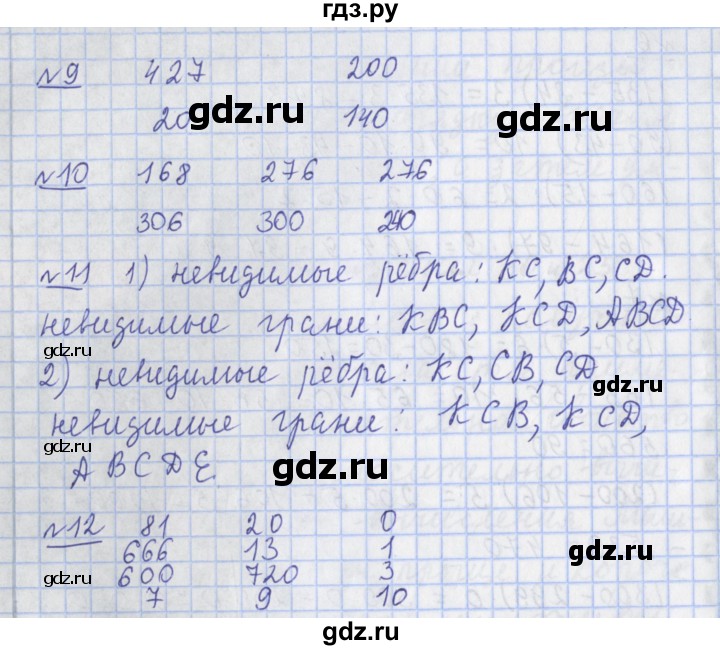 гдз.ру
№9 427 200
20 140
gdz.ru gdz.ru
№10 168 276 276
306 300 240
№11 1) невидимые рёбра: KC, BC, CD.
невидимые грани: KBC, KCD, ABCD
gdz.ru
2) невидимые рёбра: KC, CB, CD
gdz.ru
невидимые грани: KCB, KCD,
gdz.ru
ABCDE. gdz.ru
№12 81 20 0
666 13 1
gdz.ru
gdz.ru 600 720 3
7 9 10
gdz.ru